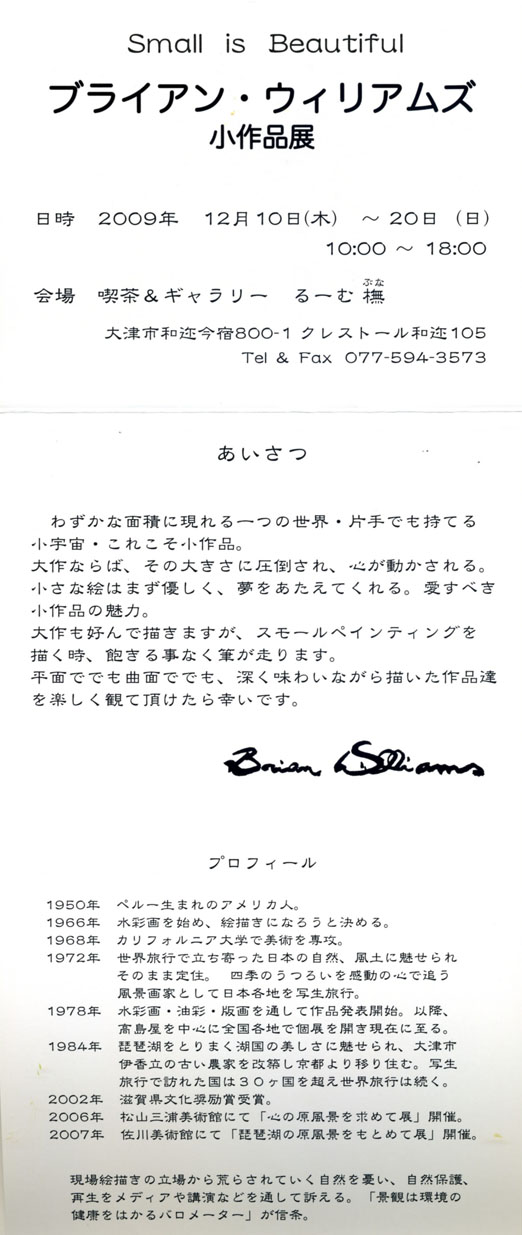 Small is Beautiful
ブライアン・ウィリアムズ
小作品展
日時 2009年 12月10日(木) ～20日 (日)
10:00 ～ 18:00
会場 喫茶＆ギャラリー るーむ 橅
ぶな
大津市和迩今宿800-1 クレストール和迩105
Tel & Fax 077-594-3573
あいさつ
わずかな面積に現れる一つの世界・片手でも持てる
小宇宙・これこそ小作品。
大作ならば、その大きさに圧倒され、心が動かされる。
小さな絵はまず優しく、夢をあたえてくれる。愛すべき
小作品の魅力。
大作も好んで描きますが、スモールペインティングを
描く時、飽きる事なく筆が走ります。
平面ででも曲面ででも、深く味わいながら描いた作品達
を楽しく観て頂けたら幸いです。
Brian Williams
プロフィール
1950年 ペルー生まれのアメリカ人。
1966年 水彩画を始め、絵描きになろうと決める。
1968年 カリフォルニア大学で美術を専攻。
1972年 世界旅行で立ち寄った日本の自然、風土に魅せられ
そのまま定住。 四季のうつろいを感動の心で追う
風景画家として日本各地を写生旅行。
1978年 水彩画・油彩・版画を通して作品発表開始。以降、
高島屋を中心に全国各地で個展を開き現在に至る。
1984年 琵琶湖をとりまく湖国の美しさに魅せられ、大津市
伊香立の古い農家を改築し京都より移り住む。写生
旅行で訪れた国は３０ヶ国を超え世界旅行は続く。
2002年 滋賀県文化奨励賞受賞。
2006年 松山三浦美術館にて「心の原風景を求めて展」開催。
2007年 佐川美術館にて「琵琶湖の原風景をもとめて展」開催。
現場絵描きの立場から荒らされていく自然を憂い、自然保護、
再生をメディアや講演などを通して訴える。「景観は環境の
健康をはかるバロメーター」が信条。